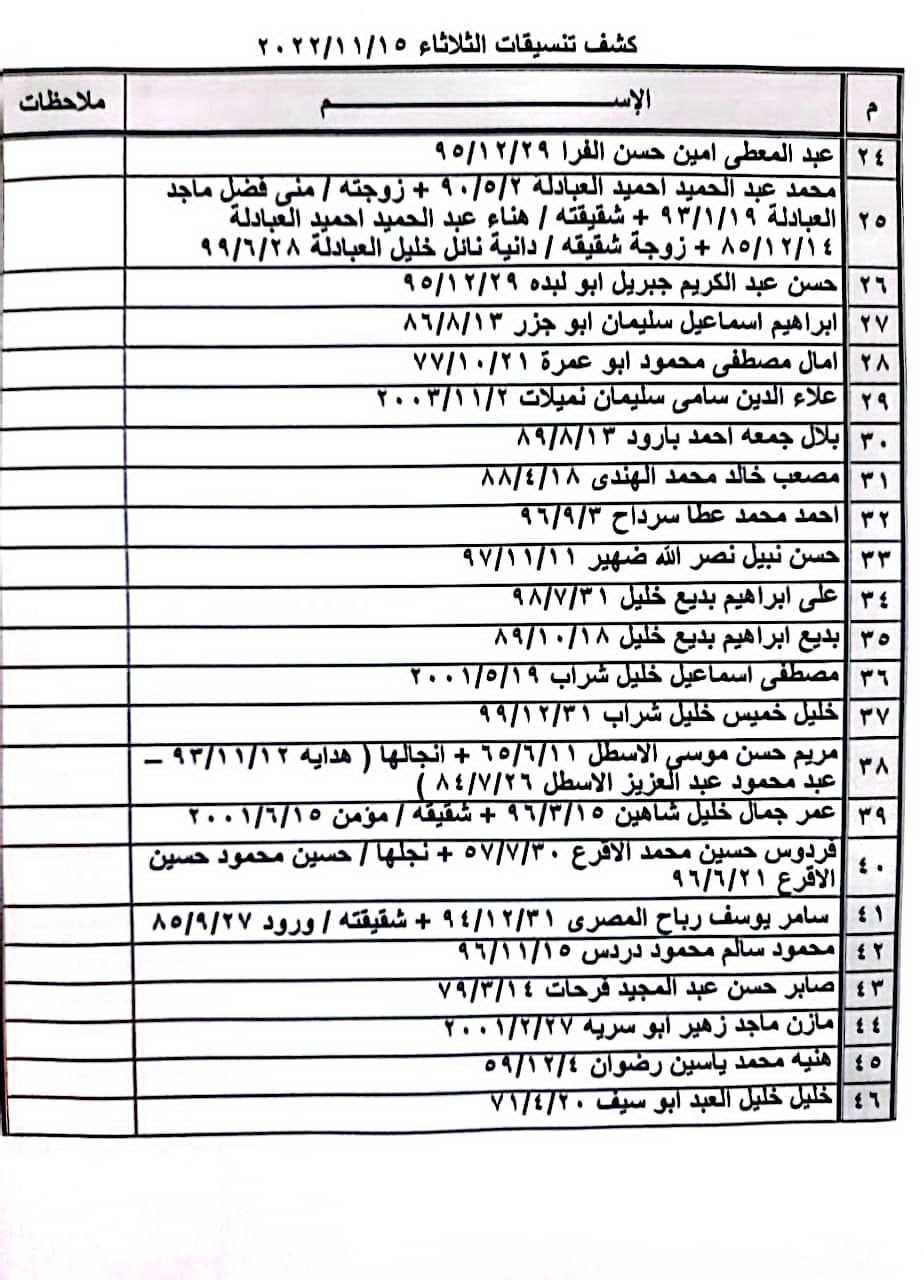 كشف تنسيقات الثلاثاء ٢٠٢٢/١١/١٥
م الإســـــــم ملاحظات
٢٤ عبد المعطى امين حسن الفرا ٩٥/١٢/٢٩
٢٥ محمد عبد الحميد احميد العبادلة ٩٠/٥/٢ + زوجته / منى فضل ماجد
العبادلة ٩٣/١/١٩ + شقيقته / هناء عبد الحميد احميد العبادلة
٨٥/١٢/١٤ + زوجة شقيقه / دانية نائل خليل العبادلة ٩٩/٦/٢٨
٢٦ حسن عبد الكريم جبريل ابو لبده ٩٥/١٢/٢٩
٢٧ ابراهيم اسماعيل سليمان ابو جزر ٨٦/٨/١٣
٢٨ امال مصطفى محمود ابو عمرة ٧٧/١٠/٢١
٢٩ علاء الدين سامى سليمان نميلات ٢٠٠٣/١١/٢
٣٠ بلال جمعه احمد بارود ٨٩/٨/١٣
٣١ مصعب خالد محمد الهندى ٨٨/٤/١٨
٣٢ احمد محمد عطا سرداح ٩٦/٩/٣
٣٣ حسن نبيل نصر الله ضهير ٩٧/١١/١١
٣٤ على ابراهيم بديع خليل ٩٨/٧/٣١
٣٥ بديع ابراهيم بديع خليل ٨٩/١٠/١٨
٣٦ مصطفى اسماعيل خليل شراب ٢٠٠١/٥/١٩
٣٧ خليل خميس خليل شراب ٩٩/١٢/٣١
٣٨ مريم حسن موسى الاسطل ٦٥/٦/١١ + انجالها ( هدايه ٩٣/١١/١٢ –
عبد محمود عبد العزيز الاسطل ٨٤/٧/٢٦ )
٣٩ عمر جمال خليل شاهين ٩٦/٣/١٥ + شقيقه / مؤمن ٢٠٠١/٦/١٥
٤٠ فردوس حسين محمد الاقرع ٥٧/٧/٣٠ + نجلها / حسين محمود حسين
الاقرع ٩٦/٦/٢١
٤١ سامر يوسف رباح المصرى ٩٤/١٢/٣١ + شقيقته / ورود ٨٥/٩/٢٧
٤٢ محمود سالم محمود دردس ٩٦/١١/١٥
٤٣ صابر حسن عبد المجيد فرحات ٧٩/٣/١٤
٤٤ مازن ماجد زهير ابو سريه ٢٠٠١/٢/٢٧
٤٥ هنيه محمد ياسين رضوان ٥٩/١٢/٤
٤٦ خليل خليل العبد ابو سيف ٧١/٤/٢٠